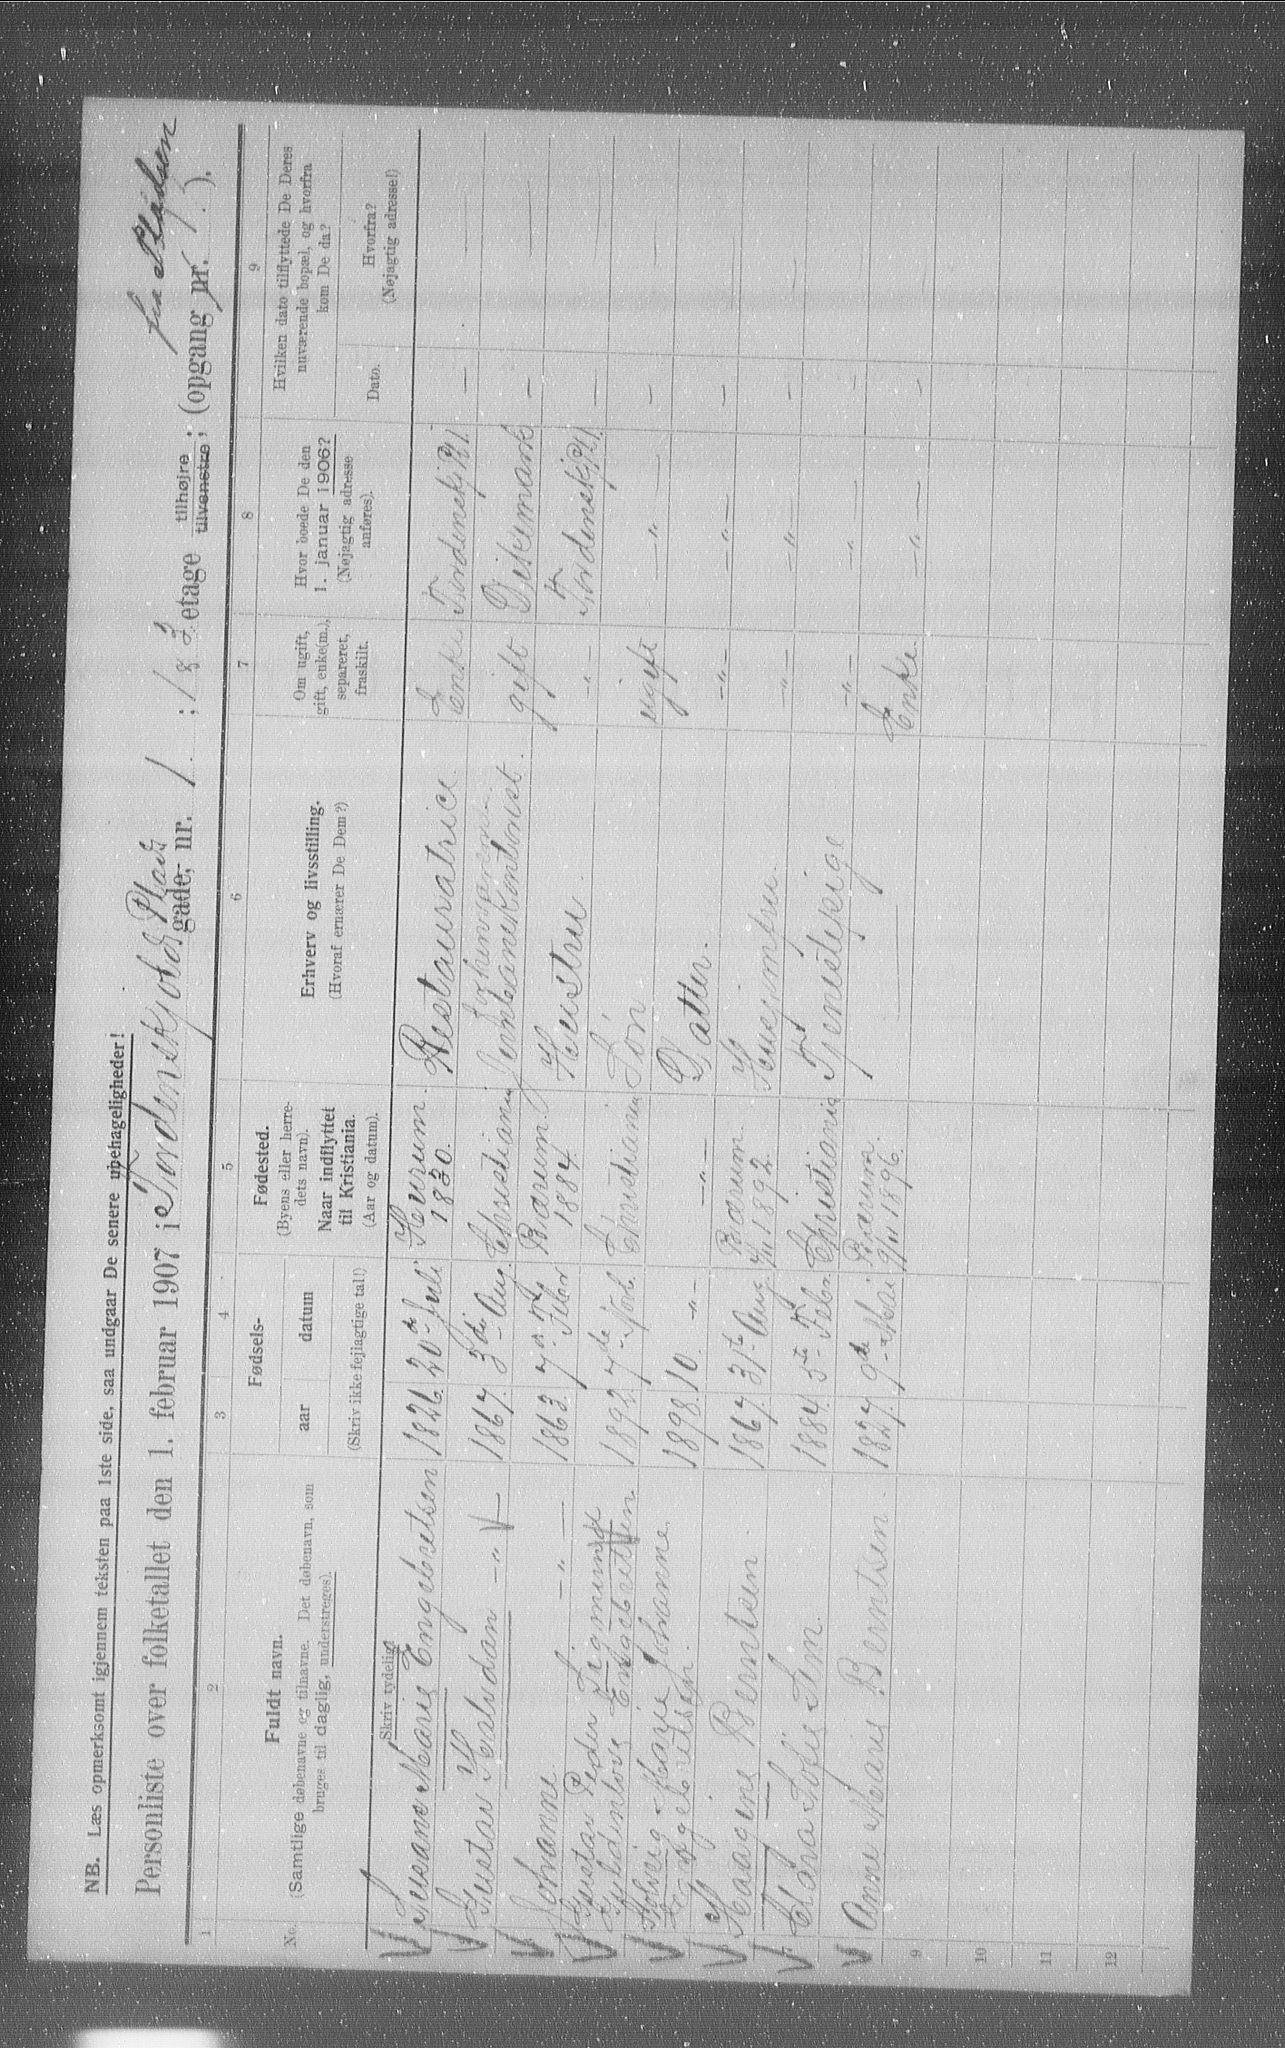 NB. Læs opmerksomt igjennem teksten paa 1ste side, saa undgaar De senere ubehageligheder!
fra Pladsen
Personliste over folketallet den 1. februar 1907 i Tordenskjolds Plads gade, nr. 1 ; 1 & 2 etage tilhøjre tilvenstre; (opgang nr. / ).
1 2 3 4 5 6 7 8 9
No.
Fuldt navn.
(Samtlige døbenavne og tilnavne. Det døbenavn, som
bruges til daglig, understreges).
Skriv tydelig!
Fødsels-
aar datum
(Skriv ikke fejlagtige tal!)
Fødested.
(Byens eller herre-
dets navn).
Naar indflyttet
til Kristiania.
(Aar og datum).
Erhverv og livsstilling.
(Hvoraf ernærer De Dem?)
Om ugift,
gift, enke(m.),
separeret,
fraskilt.
Hvor boede De den
1. januar 1906?
(Nøjagtig adresse
anføres).
Hvilken dato tilflyttede De Deres
nuværende bopæl, og hvorfra
kom De da?
Dato.
Hvorfra?
(Nøjagtig adresse!)
Susane Marie Engebretsen 1826. 20de Juli Hurum. 1830. Restauratrice. Enke Tordenskj Pl 1. —
Gustav Halvdan —"— 1867. 3die Aug. Christiania Jernbanekontorist. gift Dikemark —
Johanne. —"— 1863. 7de Febr Bærum. 1884. Hustru. —"— Tordenskj Pl 1. —
Gustav Peder Sigmund
Engebretsen. 1892. 7de Novb. Christiania Søn. ugift —"— —
Solveig Marie Johanne.
Engebretsen. 1898. 10. —"— —"— Datter. —"— —"— —
Haagine Berntsen 1867. 31te Aug. Bærum. 1892. Husjomfru. —"— —"— —
Clara Sofie Sim. 1884. 5te Febr. Christiania Tjenestepige —"— —"— —
Anne Marie Berntsen. 1827. 9de Mai Bærum. 9/11 1896. — Enke. —"— —
9
10
11
12